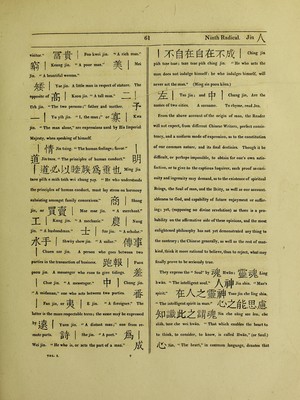 61
Ninth Radical. Jin 人
writer." 富貴 Foo kwei jin. "A rich man."
窮 Keung jin. "A poor man." 美 Mei
jin. "A beautiful woman."
矮 Yae jin. A little man in respect of stature. The
opposite of 高 Kaou jin. "A tall man."
Yih jin. "The two persons;" father and mother. 予
Yu yih jin. "I, the man;" or 寡 Kwa
jin. "The man alone," are expressions used by His Imperial
Majesty, when speaking of himself.
情 Jin tsing. "The human feelings; favor."
道 Jin taou. "The principles of human conduct." 明
道必以睦族為重也 Ming jin
taou peih e muh tsuh wei chung yay. "He who understands
the principles of human conduct, must lay stress on harmony
subsisting amongst family connexions." 商 Shang
jin, or 買賣 Mae mae jin. "A merchant."
工 Kung jin. "A mechanic." 農 Nung
jin. "A husbandman." 士 Sze jin. "A scholar."
水手 Shwuy show jin. "A sailor." 傳事
Chuen sze jin. A person who goes between two
parties in the transaction of business. 跑報 Paou
paou jin. A messenger who runs to give tidings. 差
Chae jin. "A messenger." 中 Chung jin.
"A mediator;" one who acts between two parties. 番
Fan jin, or 夷 E jin. "A foreigner." The
latter is the more respectable term; the same may be expressed
by 遠 Yuen jin. "A distant man;" one from re-
mote parts. 詩 She jin. "A poet." 為成
Wei jin. "He who is, or acts the part of a man."
VOL. I.
不自在自在不成 Ching jin
puh tsze tsae; tsze tsae puh ching jin. "He who acts the
man does not indulge himself: he who indulges himself, will
never act the man." (Ming sin paou këen.)
左 Tso jin; and 中 Chung jin, Are the
names of two cities. A surname. To rhyme, read Jen.
From the above account of the origin of man, the Reader
will not expect, from different Chinese Writers, perfect consis-
tency, and a uniform mode of expression, as to the constitution
of our common nature, and its final destination. Though it is
difficult, or perhaps impossible, to obtain for one's own satis-
faction, or to give to the copious inquirer, such proof as curi-
osity and ingenuity may demand, as to the existence of spiritual
Beings, the Soul of man, and the Deity, as well as our account-
ableness to God, and capability of future enjoyment or suffer-
ing; yet, (supposing no divine revelation) as there is a pro-
bability on the affirmative side of these opinions, and the most
enlightened philosophy has not yet demonstrated any thing to
the contrary; the Chinese generally, as well as the rest of man-
kind, think it more rational to believe, than to reject, what may
finally prove to be seriously true.
They express the "Soul" by 魂 Hwǎn; 靈魂 Ling
hwǎn. "The intelligent soul." 人神 Jin shin. "Man's
spirit." 在人之靈神 Tsae jin che ling shin.
"The intelligent spirit in man." 心之能思慮
知識此之謂魂 Sin che nǎng sze leu, che
shih, tsze che wei hwǎn. "That which enables the heart to
to think, to consider, to know, is called Hwǎn, (or Soul.)
心 Sin, "The heart," in common language, denotes that